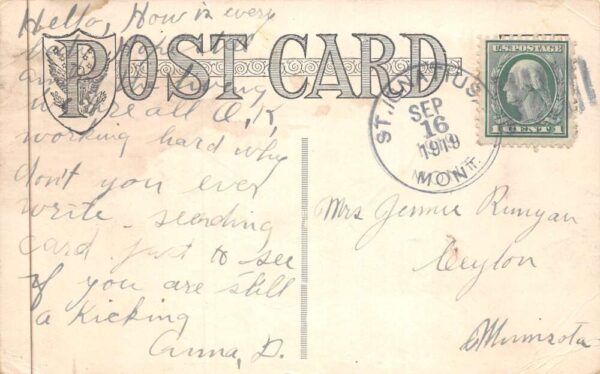 Hello, How is every
and
we are all O.K.
working hard why
don't you ever
write - sending
card just to see
if you are still
a Kicking
Anna, D.
POST CARD
ST. IGNATIUS
SEP
16
1919
MONT.
U.S. POSTAGE
1 CENT 1
Mrs Jennie Runyan
Ceylon
Minnesota